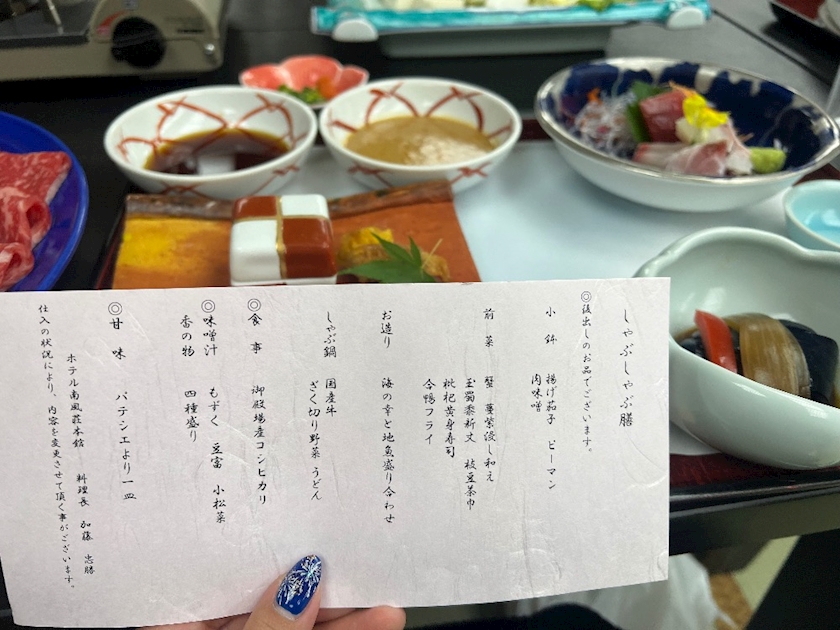 しゃぶしゃぶ膳
◎後出しのお品でございます。
小鉢 揚げ茄子 ピーマン
肉味噌
前菜 蟹 蔓紫浸し和え
玉蜀黍新丈 枝豆茶巾
枇杷黄身寿司
合鴨フライ
お造り 海の幸と地魚盛り合わせ
しゃぶ鍋 国産牛
ざく切り野菜 うどん
◎食事 御殿場産コシヒカリ
◎味噌汁 もずく 豆富 小松菜
香の物 四種盛り
◎甘味 パティシエより一皿
ホテル南風荘本館 料理長 加藤 忠勝
仕入の状況により、内容を変更させて頂く事がございます。